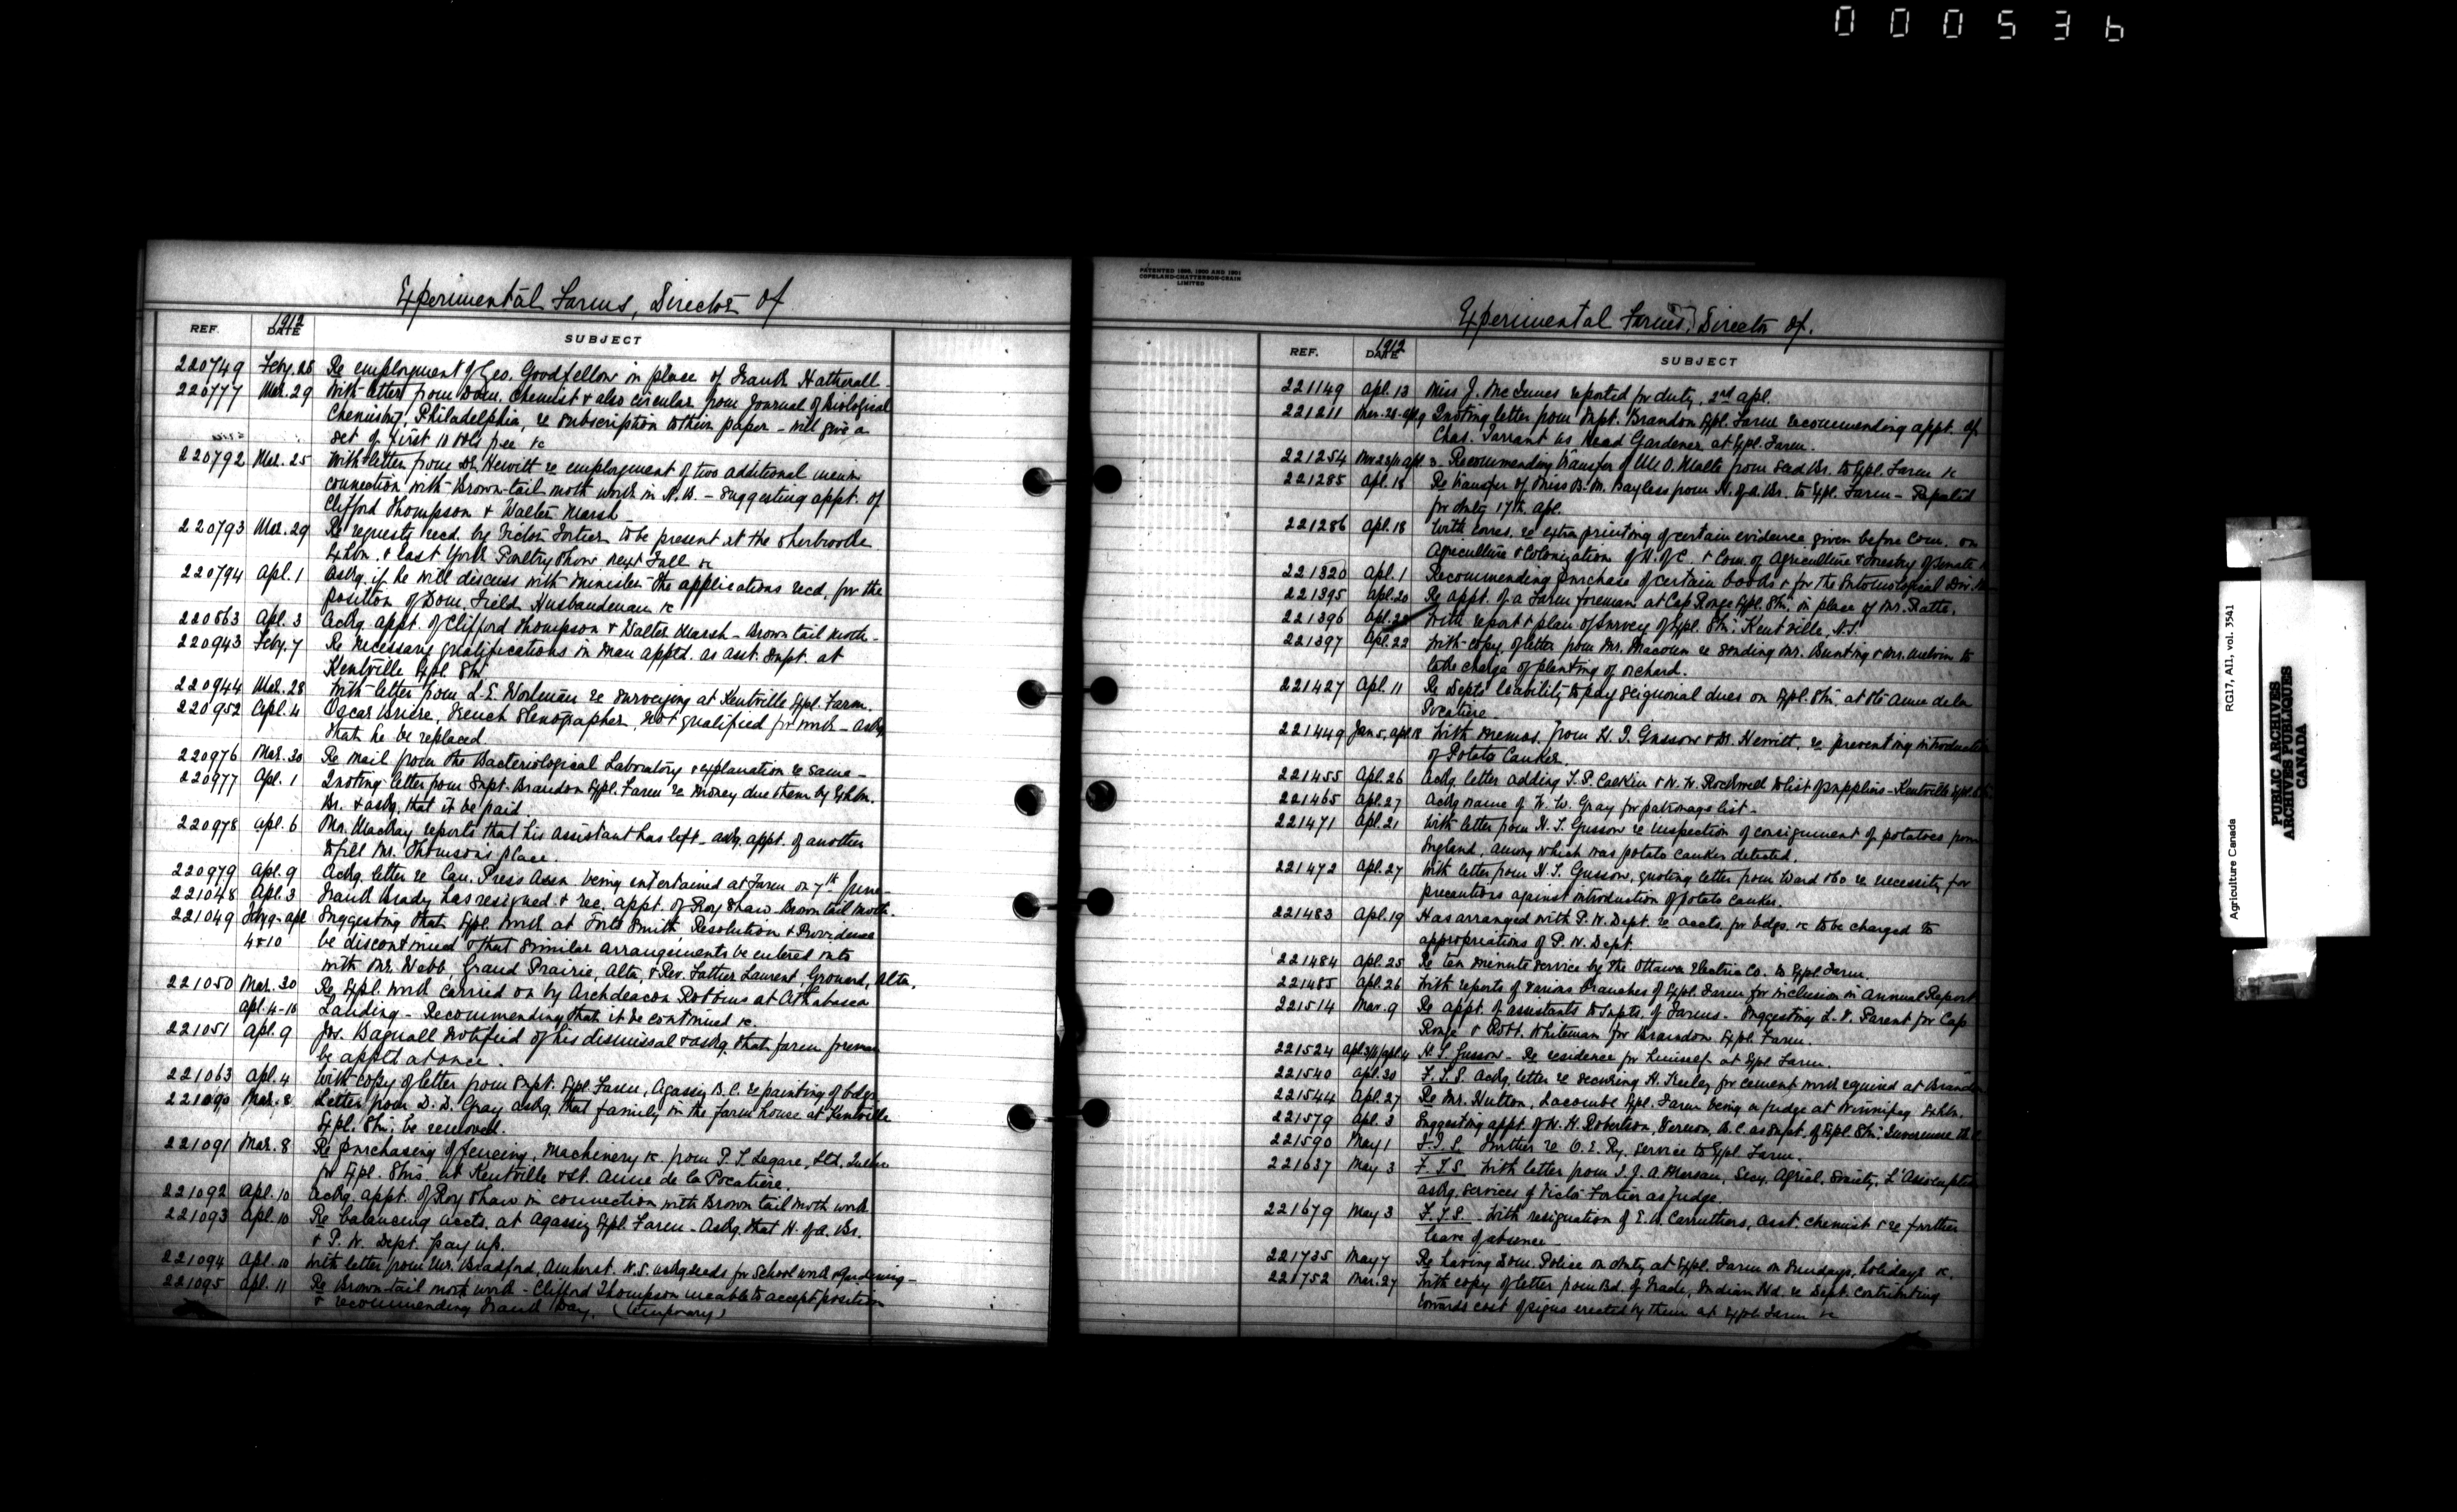 000536
Experimental Farms, Director of
REF. 1912 DATE SUBJECT
220749 Feby. 28 Re employment of Geo. Goodfellow in place of Frank Hatherall-
220777 Mar. 29 With letter from Dom. Chemist & also circular from Journal of Biological
Chemistry, Philadelphia, re subscription to their paper - will give a
set of first 10 vols free &c
220792 Mar. 25 With letter from Dr. Hewitt re employment of two additional men in
connection with Brown-tail moth work in N.B. - suggesting appt. of
Clifford Thompson & Walter Marsh
220793 Mar. 29 Re requests recd. by Victor Fortier to be present at the Sherbrooke
Exhbn. & East York Poultry Show next Fall &c
220794 Apl. 1 Askg. if he will discuss with Minister the applications recd. for the
position of Dom. Field Husbandman &c
220863 Apl. 3 Ackg. appt. of Clifford Thompson & Walter Marsh - Brown tail moth-
220943 Feby. 7 Re necessary qualifications in man apptd. as asst. Supt. at
Kentville Expl. Stn.
220944 Mar. 28 With letter from L.E. Wortman re surveying at Kentville Expl. Farm.
220952 Apl. 4 Oscar Briere, French Stenographer, not qualified for work - askg.
that he be replaced
220976 Mar. 30 Re mail from the Bacteriological Laboratory & explanation re same-
220977 Apl. 1 Quoting letter from Supt. Brandon Expl. Farm re money due them by Exhbn.
Br. & askg. that it be paid
220978 Apl. 6 Mr. MacKay reports that his assistant has left - askg. appt. of another
to fill Mr. Thomson's place.
220979 Apl. 9 Ackg. letter re Can. Press Assn. being entertained at Farm on 7th June-
221048 Apl. 3 Frank Brady has resigned & rec. appt. of Roy Shaw - Brown tail moth.
221049 Feby 9-Apl Suggesting that Expl. work at Forts Smith Resolution & Providence
4&10 be discontinued & that similar arrangements be entered into
with Mr. Webb, Grand Prairie, Alta, & Rev. Father Laurent, Grouard, Alta.
221050 Mar. 30 Re Expl. work carried on by Archdeacon Robbins at Athabasca
Apl. 4-10 Landing - Recommending that it be continued &c.
221051 Apl. 9 Jos. Bagnall notified of his dismissal & askg. that farm foreman
be apptd at once.
221063 Apl. 4 With copy of letter from Supt. Expl. Farm, Agassiz B.C. re painting of bdgs.
221090 Mar. 8 Letter from D.D. Gray askg. that family in the farm house at Kentville
Expl. Stn. be removed.
221091 Mar. 8 Re purchasing of fencing, machinery &c. from P.T. Legare, Ltd, Quebec
for Expl. Stns. at Kentville & St. Anne de la Pocatiere.
221092 Apl. 10 Ackg. appt. of Roy Shaw in connection with Brown tail moth work
221093 Apl. 10 Re balancing accts. at Agassiz Expl. Farm - Askg. that H. of A. Br.
& P.W. Dept. pay up.
221094 Apl. 10 With letter from Mr. Bradford, Amherst. N.S. askg seeds for School work & gardening -
221095 Apl. 11 Re Brown-tail moth work - Clifford Thompson unable to accept position
& recommending Frank Day. (temporary)
PATENTED 1898, 1900 AND 1901
COPELAND-CHATTERSON-CRAIN
LIMITED
Experimental Farms, Director of.
REF. 1912 DATE SUBJECT
221149 Apl. 13 Miss J. McInnes reported for duty, 2nd Apl.
221211 Mar. 28-Apl 9 Quoting letter from Supt. Brandon Expl. Farm recommending appt. of
Chas. Tarrant as Head Gardener at Expl. Farm.
221254 Apl 3. Recommending transfer of M.O. Malte from Seed Br. to Expl. Farm &c
221285 Apl. 18 Re transfer of Miss B.M. Bayless from H. of A. Br. to Expl. Farm - Reported
for duty 17th Apl.
221286 Apl. 18 With corres. re extra printing of certain evidence given before Com. on
Agriculture & Colonization of H. of C. & Com. of Agriculture & Forestry of Senate
221320 Apl. 1 Recommending purchase of certain books &c for the Entomological Div.
221395 Apl. 20 Re appt. of a farm foreman at Cap Rouge Expl. Stn. in place of Mr. Ratte.
221396 Apl. 22 With report & plan of survey of Expl. Stn. Kentville, N.S.
221397 Apl. 22 With copy of letter from Mr. Macoun re sending Mr. Bunting & Mr. Melvin to
take charge of planting of orchard.
221427 Apl. 11 Re Depts liability to pay seignorial dues on Expl. Stn. at Ste Anne de la
Pocatiere
221449 Jan 5, Apl. 18 With memos. from H.T. Gussow & Dr. Hewitt, re preventing introduction
of Potato Canker.
221455 Apl. 26 Ackg. letter adding T.P. Calkin & W.W. Rockwell to list of suppliers - Kentville Expl.
221465 Apl. 27 Ackg name of W.W. Gray for patronage list -
221471 Apl. 21 With letter from H.T. Gussow re inspection of consignment of potatoes from
England, among which was potato canker detected.
221472 Apl. 27 With letter from H.T. Gussow, quoting letter from Ward & Co re necessity for
precautions against introduction of potato canker.
221483 Apl. 19 Has arranged with P.W. Dept. re accts. for bdgs. &c to be charged to
appropriations of P.W. Dept.
221484 Apl. 25 Re ten minute service by the Ottawa Electric Co. to Expl. Farm.
221485 Apl. 26 With reports of various branches of Expl. Farm for inclusion in Annual Report
221514 Mar. 9 Re appt. of assistants to Supts. of Farms - Suggesting L.V. Parent for Cap
Rouge & Robt. Whiteman for Brandon Expl. Farm.
221524 H.T. Gussow - Re residence for himself at Expl Farm.
221540 Apl. 30 F.T.S. Ackg. letter re securing H. Keeley for cement work required at Brandon
221544 Apl. 27 Re Mr. Hutton, Lacombe Expl. Farm being a judge at Winnipeg Exhbn.
221579 Apl. 3 Suggesting appt. of W.H. Robertson, Vernon, B.C. as Supt. of Expl. Stn. Invermere
221590 May 1 F.T.S. Further re O.E. Ry. service to Expl. Farm.
221637 May 3 F.T.S. With letter from J.J.A. Marsan, Secy. Agricl. Society, L'Assomption
askg. services of Victor Fortier as judge.
221679 May 3 F.T.S. With resignation of E.B. Carruthers, asst. chemist & re further
leave of absence-
221735 May 7 Re having Dom. Police on duty at Expl. Farm on Sundays, holidays &c.
221752 Mar. 27 With copy of letter from Bd. of Trade, Indian Hd. re Dept. contributing
towards cost of signs erected by them at Expl. Farm &c
Agriculture Canada RG17, A11, vol. 3541
PUBLIC ARCHIVES
ARCHIVES PUBLIQUES
CANADA